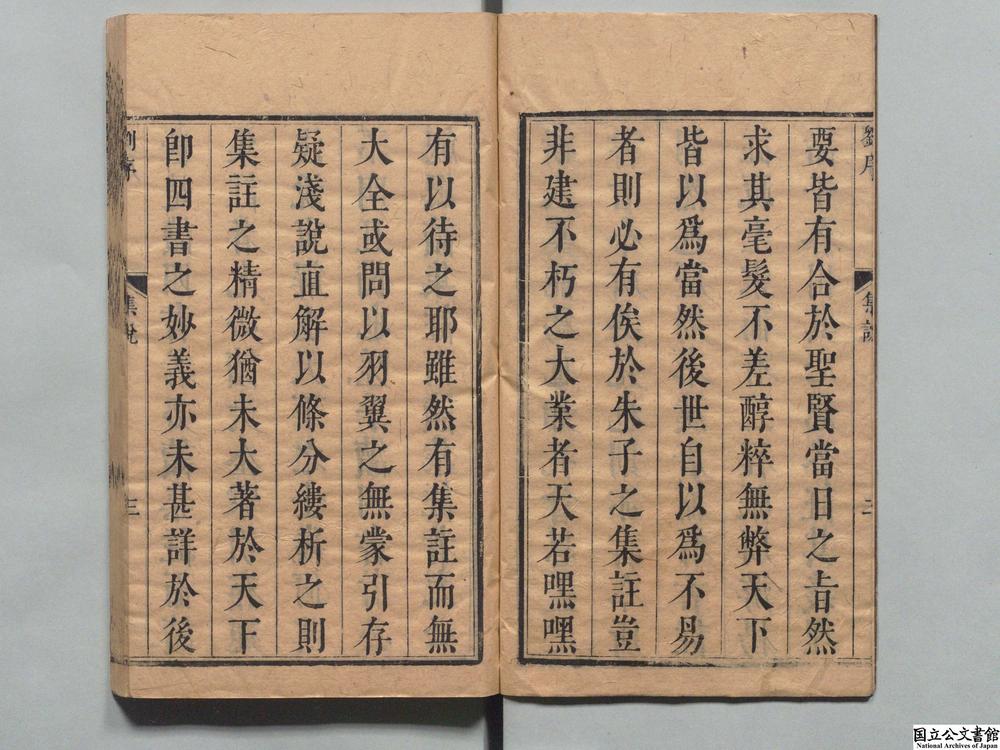 劉序
集説
二
要皆有合於聖賢當日之旨然
求其毫髮不差醇粹無弊天下
皆以爲當然後世自以爲不易
者則必有俟於朱子之集註豈
非建不朽之大業者天若嘿嘿
有以待之耶雖然有集註而無
大全或問以羽翼之無蒙引存
疑淺說直解以條分縷析之則
集註之精微猶未大著於天下
卽四書之妙義亦未甚詳於後
三
国立公文書館
National Archives of Japan